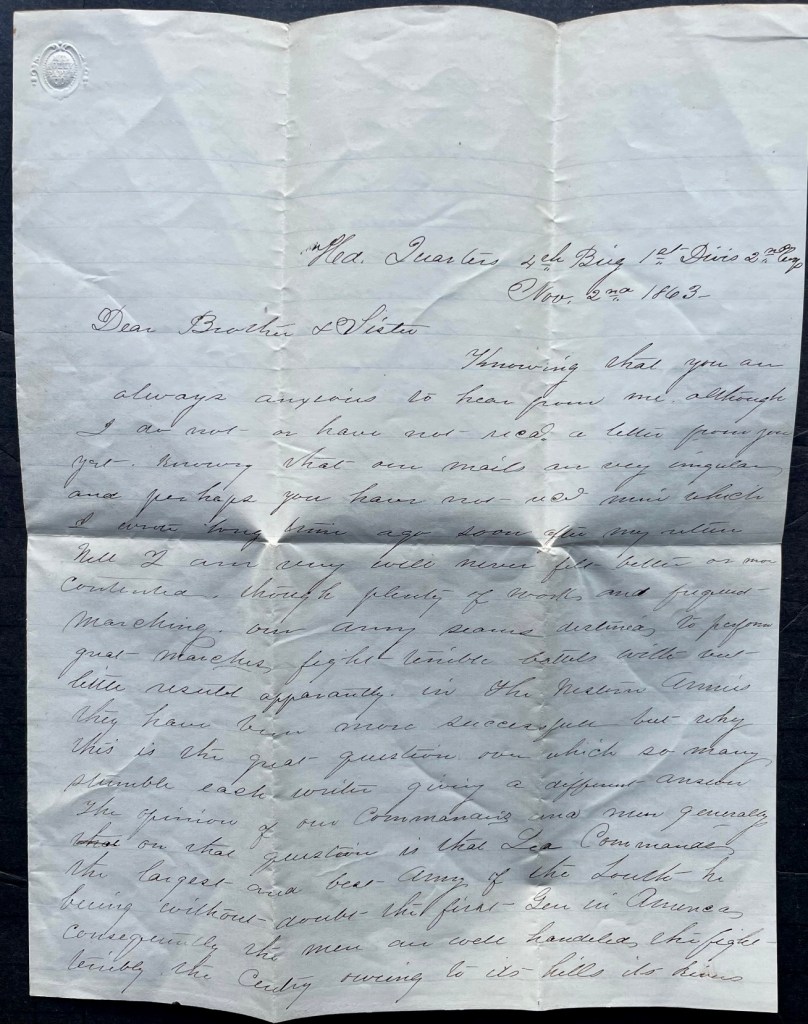 Hed. Quarters 4th Brig 1st Divis 2nd Corps
Nov. 2nd 1863-
Dear Brother & Sister
Knowing that you are
always anxious to hear from me although
I do not or have not recd. a letter from you
yet. Knowing that our mails are very irregular
and perhaps you have not recd mine which
I wrote long time ago soon after my return
Well I am very well never felt better or more
contented, though plenty of work and frequent
marching. our army seams destined to perform
great marches, fight terrible battels with but
little result apparantly. in the Western Armies
they have been more successfull but why
this is the great question over which so many
stumble each writer giving a different answer
The opinion of our Commanders and men generally
that on that question is that Lee Commands
the largest and best army of the South he
being without doubt the first Gen in America,
consequently the men are well handeled, the fight
terribly. the Centry owing to its hills its rivers